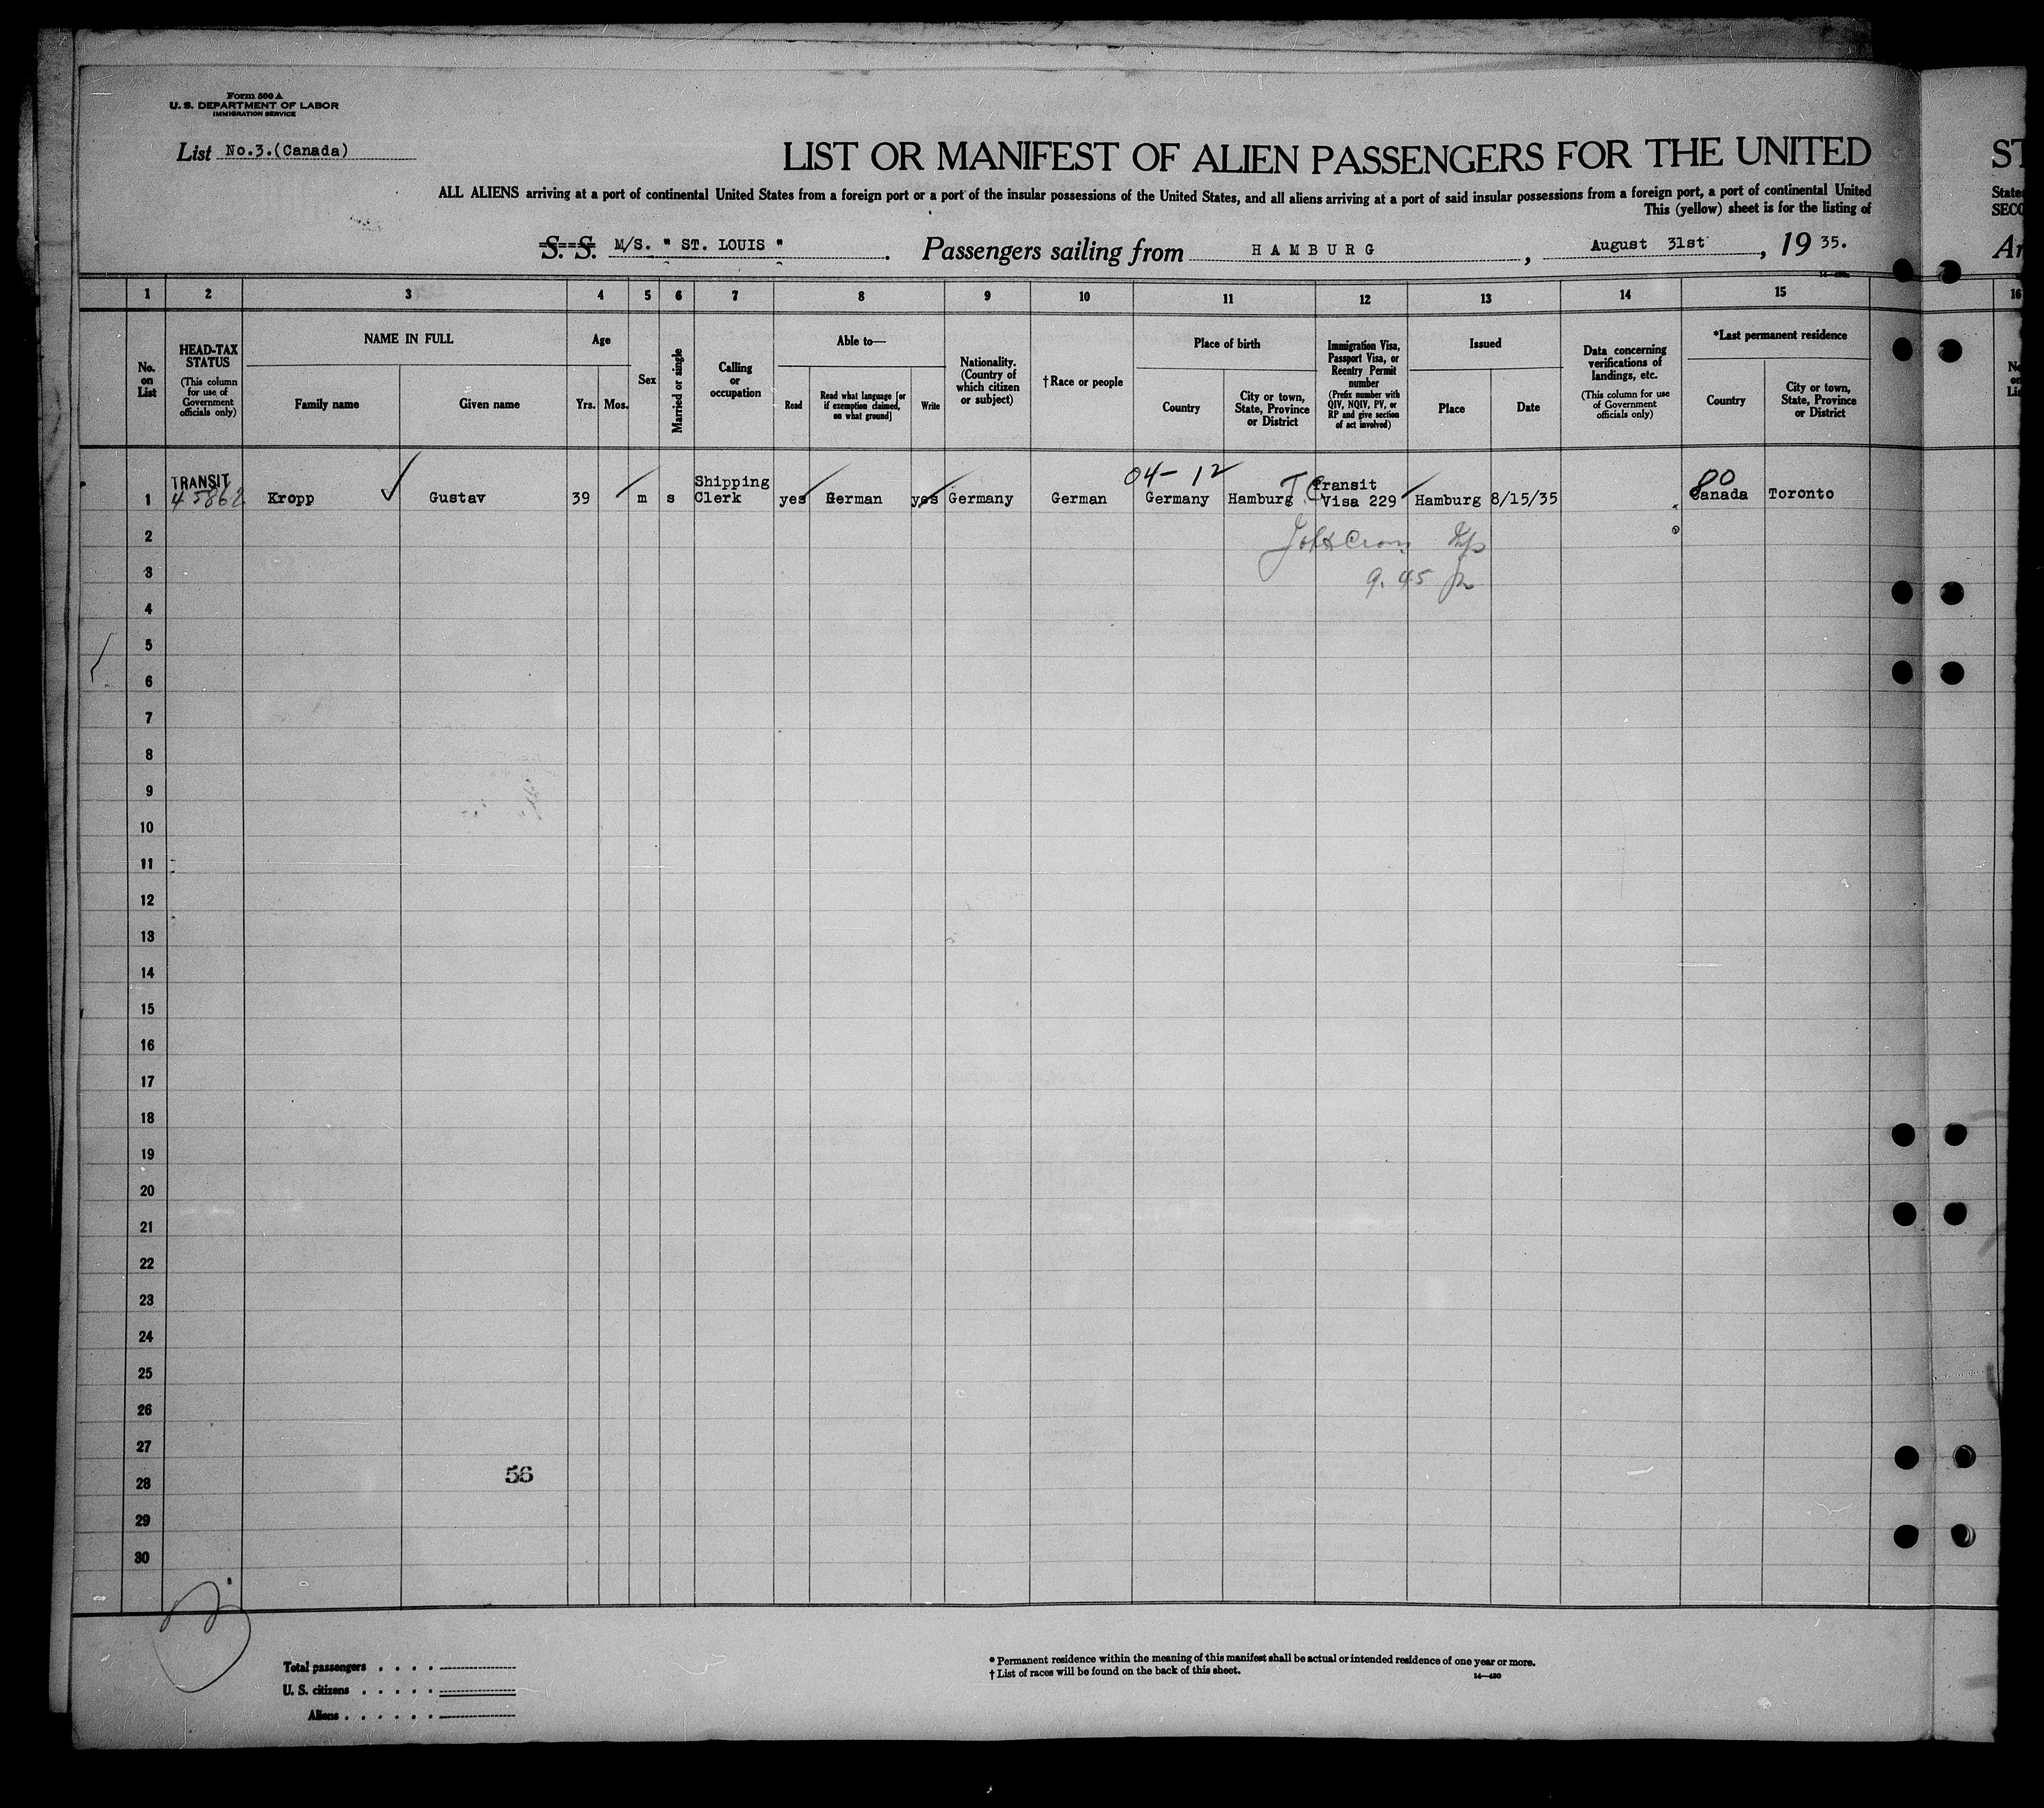 Form 500 A
U. S. DEPARTMENT OF LABOR
IMMIGRATION SERVICE
List No.3.(Canada)
LIST OR MANIFEST OF ALIEN PASSENGERS FOR THE UNITED
ST
ALL ALIENS arriving at a port of continental United States from a foreign port or a port of the insular possessions of the United States, and all aliens arriving at a port of said insular possessions from a foreign port, a port of continental United
States
This (yellow) sheet is for the listing of
SECO
S. S. M/S. " ST. LOUIS ". Passengers sailing from HAMBURG, August 31st, 19 35.
Ar
1 2 3 4 5 6 7 8 9 10 11 12 13 14 15 16
No. on List
HEAD-TAX STATUS
(This column for use of Government officials only)
NAME IN FULL
Family name
Given name
Age
Yrs. Mos.
Sex
Married or single
Calling or occupation
Able to—
Read
Read what language [or if exemption claimed, on what ground]
Write
Nationality. (Country of which citizen or subject)
†Race or people
Place of birth
Country
City or town, State, Province or District
Immigration Visa, Passport Visa, or Reentry Permit number
(Prefix number with QIV, NQIV, PV, or RP and give section of act involved)
Issued
Place
Date
Data concerning verifications of landings, etc.
(This column for use of Government officials only)
*Last permanent residence
Country
City or town, State, Province or District
TRANSIT
04-12
80
1 45862 Kropp Gustav 39 m s Shipping Clerk yes German yes Germany German Germany Hamburg TC Transit Visa 229 Hamburg 8/15/35 Canada Toronto
2
3 9.45
4
5
6
7
8
9
10
11
12
13
14
15
16
17
18
19
20
21
22
23
24
25
26
27
56
28
29
30
Total passengers . . . .
U. S. citizens . . . . .
Aliens . . . . . .
* Permanent residence within the meaning of this manifest shall be actual or intended residence of one year or more.
† List of races will be found on the back of this sheet.
14—430